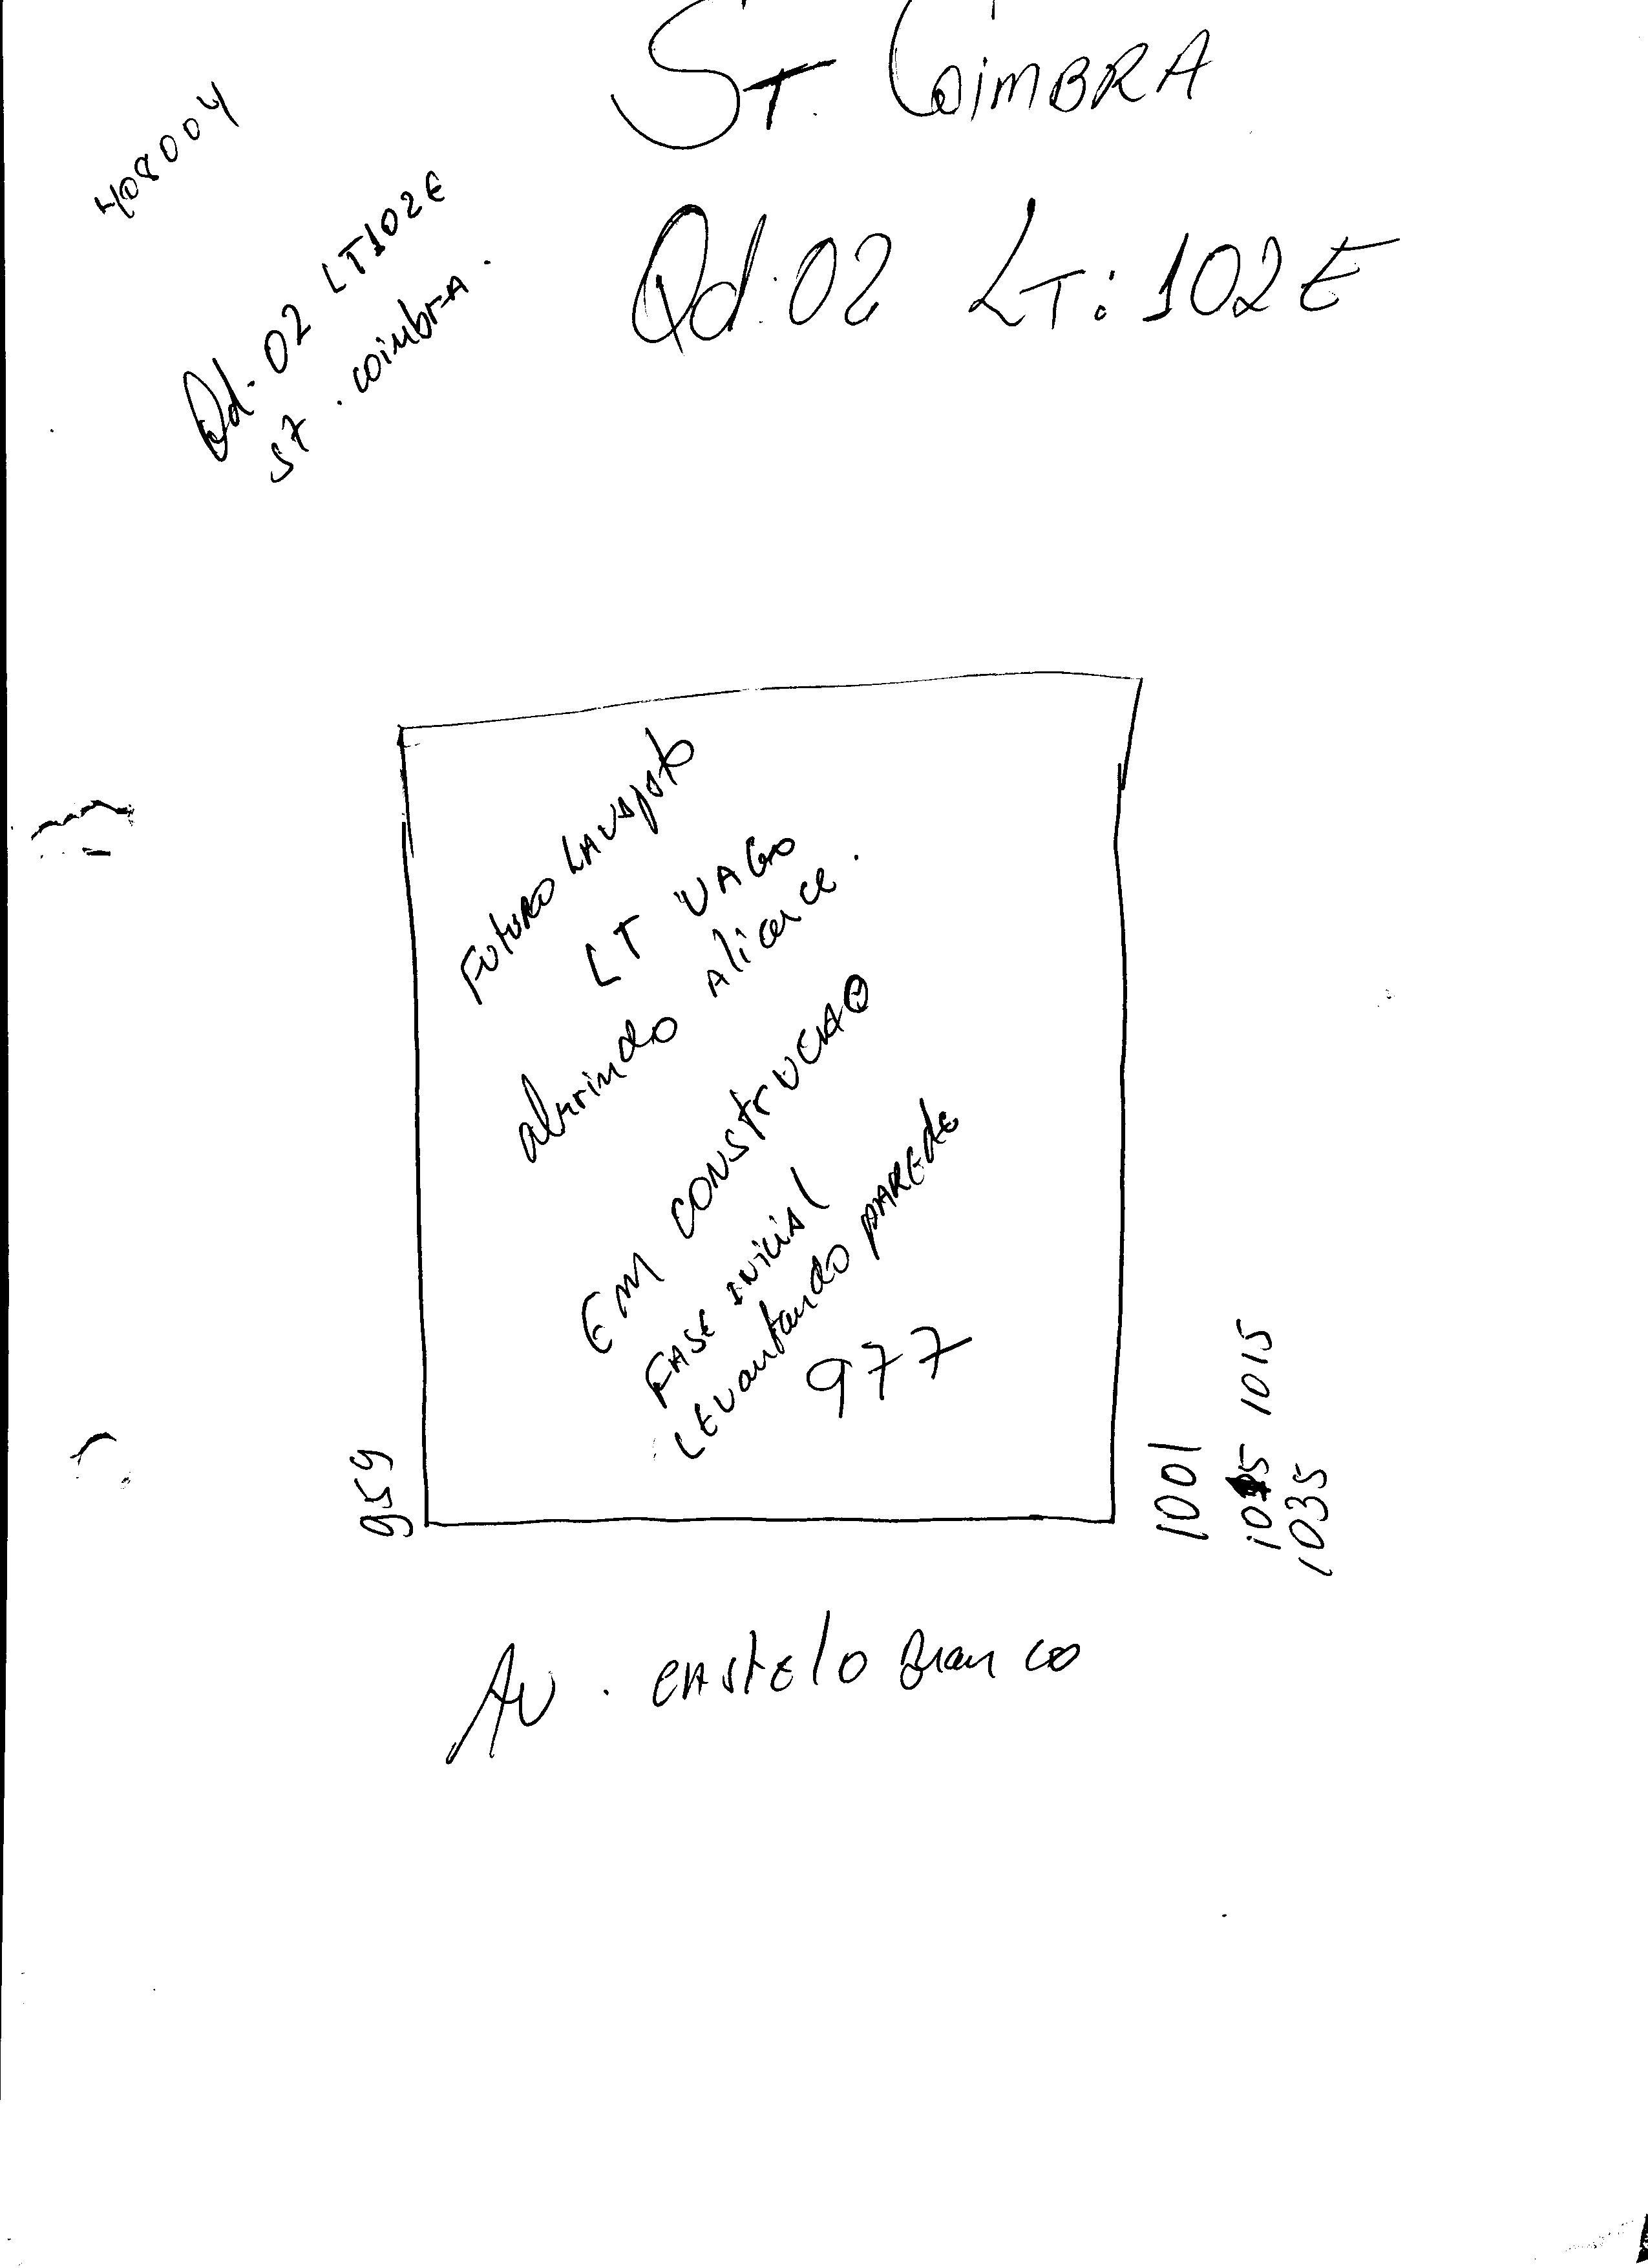 ST. COIMBRA
408004
Qd. 02 LT102E
ST. coimbra.
Qd:02 LT: 102E
Futuro LAVAjato
LT VAGo
abrindo alicerce.
Em construcao
FASE inicial
LEVantando pAREde
977
959
1001
1015
1035
Av. cAstElo Branco